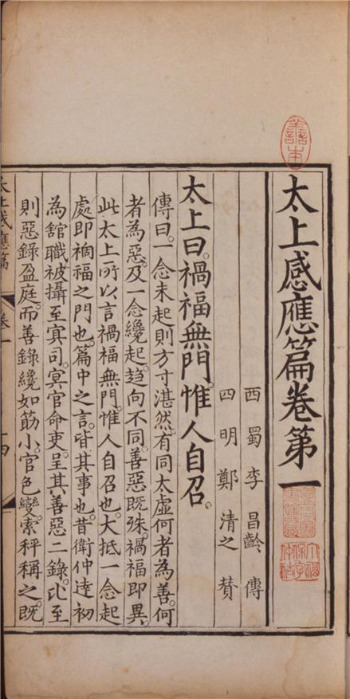 太上感應篇卷第一
西蜀李昌齡傳
四明鄭清之贊
太上曰。禍福無門。惟人自召。
傳曰。一念未起。則方寸湛然。有同太虛。何者為善。何
者為惡。及一念纔起。趍向不同。善惡既殊。禍福即異。
此太上所以言禍福無門。惟人自召也。大抵一念起
處。即禍福之門也。篇中之言。皆其事也。昔衛仲達初
為舘職。被攝至冥司。冥官命吏。呈其善惡二錄。比至
則惡錄盈庭。而善錄纔如筯小。官色變。索秤稱之。既
太上感應篇 卷一